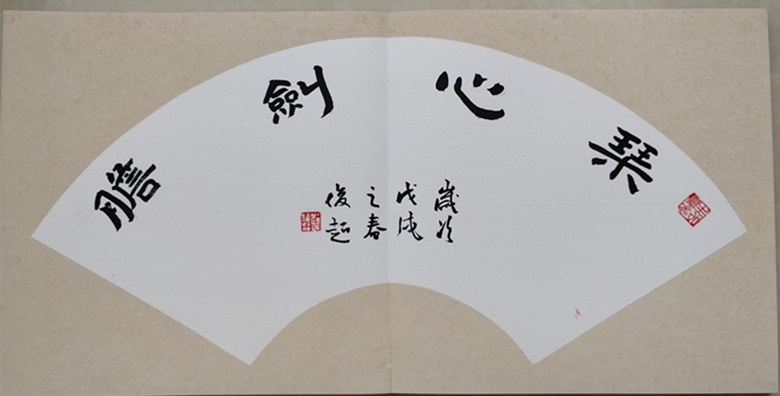 琹心劍膽
歲次
戊戌
之春
俊超